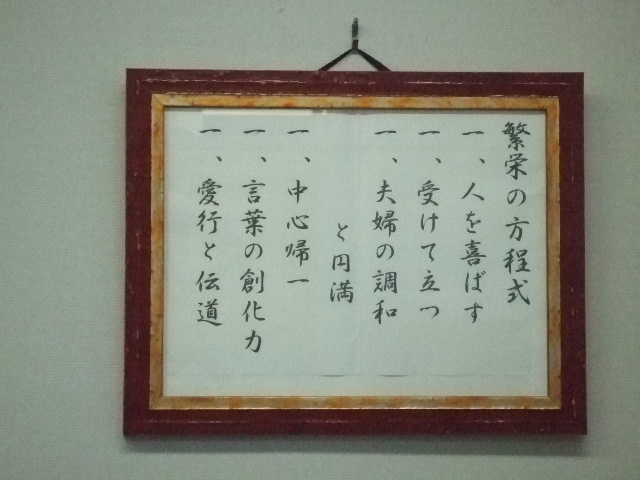 繁栄の方程式
一、人を喜ばす
一、受けて立つ
一、夫婦の調和
と円満
一、中心帰一
一、言葉の創化力
一、愛行と伝道